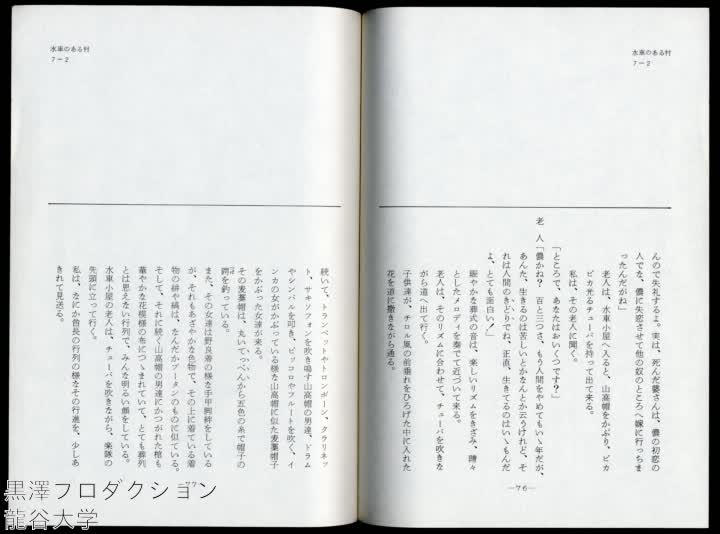 水車のある村
7－2
んので失礼するよ。実は、死んだ婆さんは、儂の初恋の
人でな、儂に失恋させて他の奴のところへ嫁に行っちま
ったんだがね」
老人は、水車小屋へ入ると、山高帽をかぶり、ピカ
ピカ光るチューバを持って出て来る。
私は、その老人に聞く。
「ところで、あなたはおいくつです？」
老　人「儂かね？　百と三つさ、もう人間をやめてもいゝ年だが、
あんた、生きるのは苦しいとかなんとか云うけれど、そ
れは人間のきどりでね、正直、生きてるのはいゝもんだ
よ、とても面白い！」
賑やかな葬式の音は、楽しいリズムをきざみ、晴々
としたメロディを奏でて近づいて来る。
老人は、そのリズムに合わせて、チューバを吹きな
がら道へ出て行く。
子供達が、チロル風の前垂れをひろげた中に入れた
花を道に撒きながら通る。
―76―
水車のある村
7－2
続いて、トランペットやトロンボーン、クラリネッ
ト、サキソフォンを吹き鳴す山高帽の男達、ドラム
やシンバルを叩き、ピッコロやフルートを吹く、イ
ンカの女がかぶっている様な山高帽に似た麦藁帽子
をかぶった女達が来る。
その麦藁帽は、丸いてっぺんから五色の糸で帽子の
鍔を釣っている。
また、その女達は野良着の様な手甲脚絆をしている
が、それもあざやかな色物で、その上に着ている着
物の絣や縞は、なんだかブータンのものに似ている。
そして、それに続く山高帽の男達にかつがれた棺も
華やかな花模様の布につゝまれていて、とても葬列
とは思えない行列で、みんな明るい顔をしている。
水車小屋の老人は、チューバを吹きながら、楽隊の
先頭に立って行く。
私は、なにか酋長の行列の様なその行進を、少しあ
きれて見送る。
77
黒澤プロダクション
龍谷大学